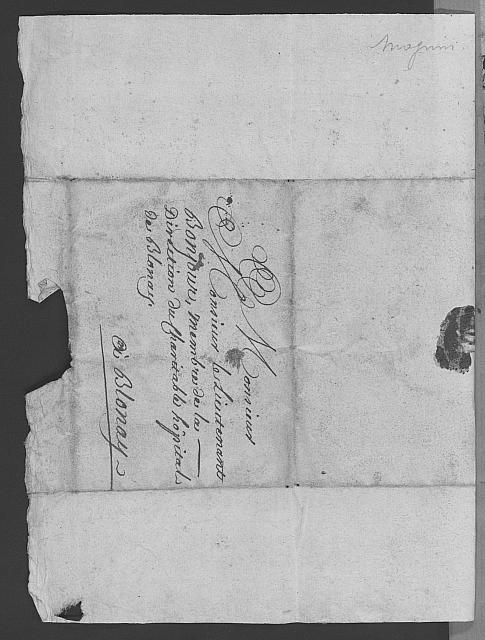 Magnin
A Monsieur
Monsieur le Lieutenant
Bonjour, membre de la
Direction du Charitable hôpital
de Blonay.
à Blonay